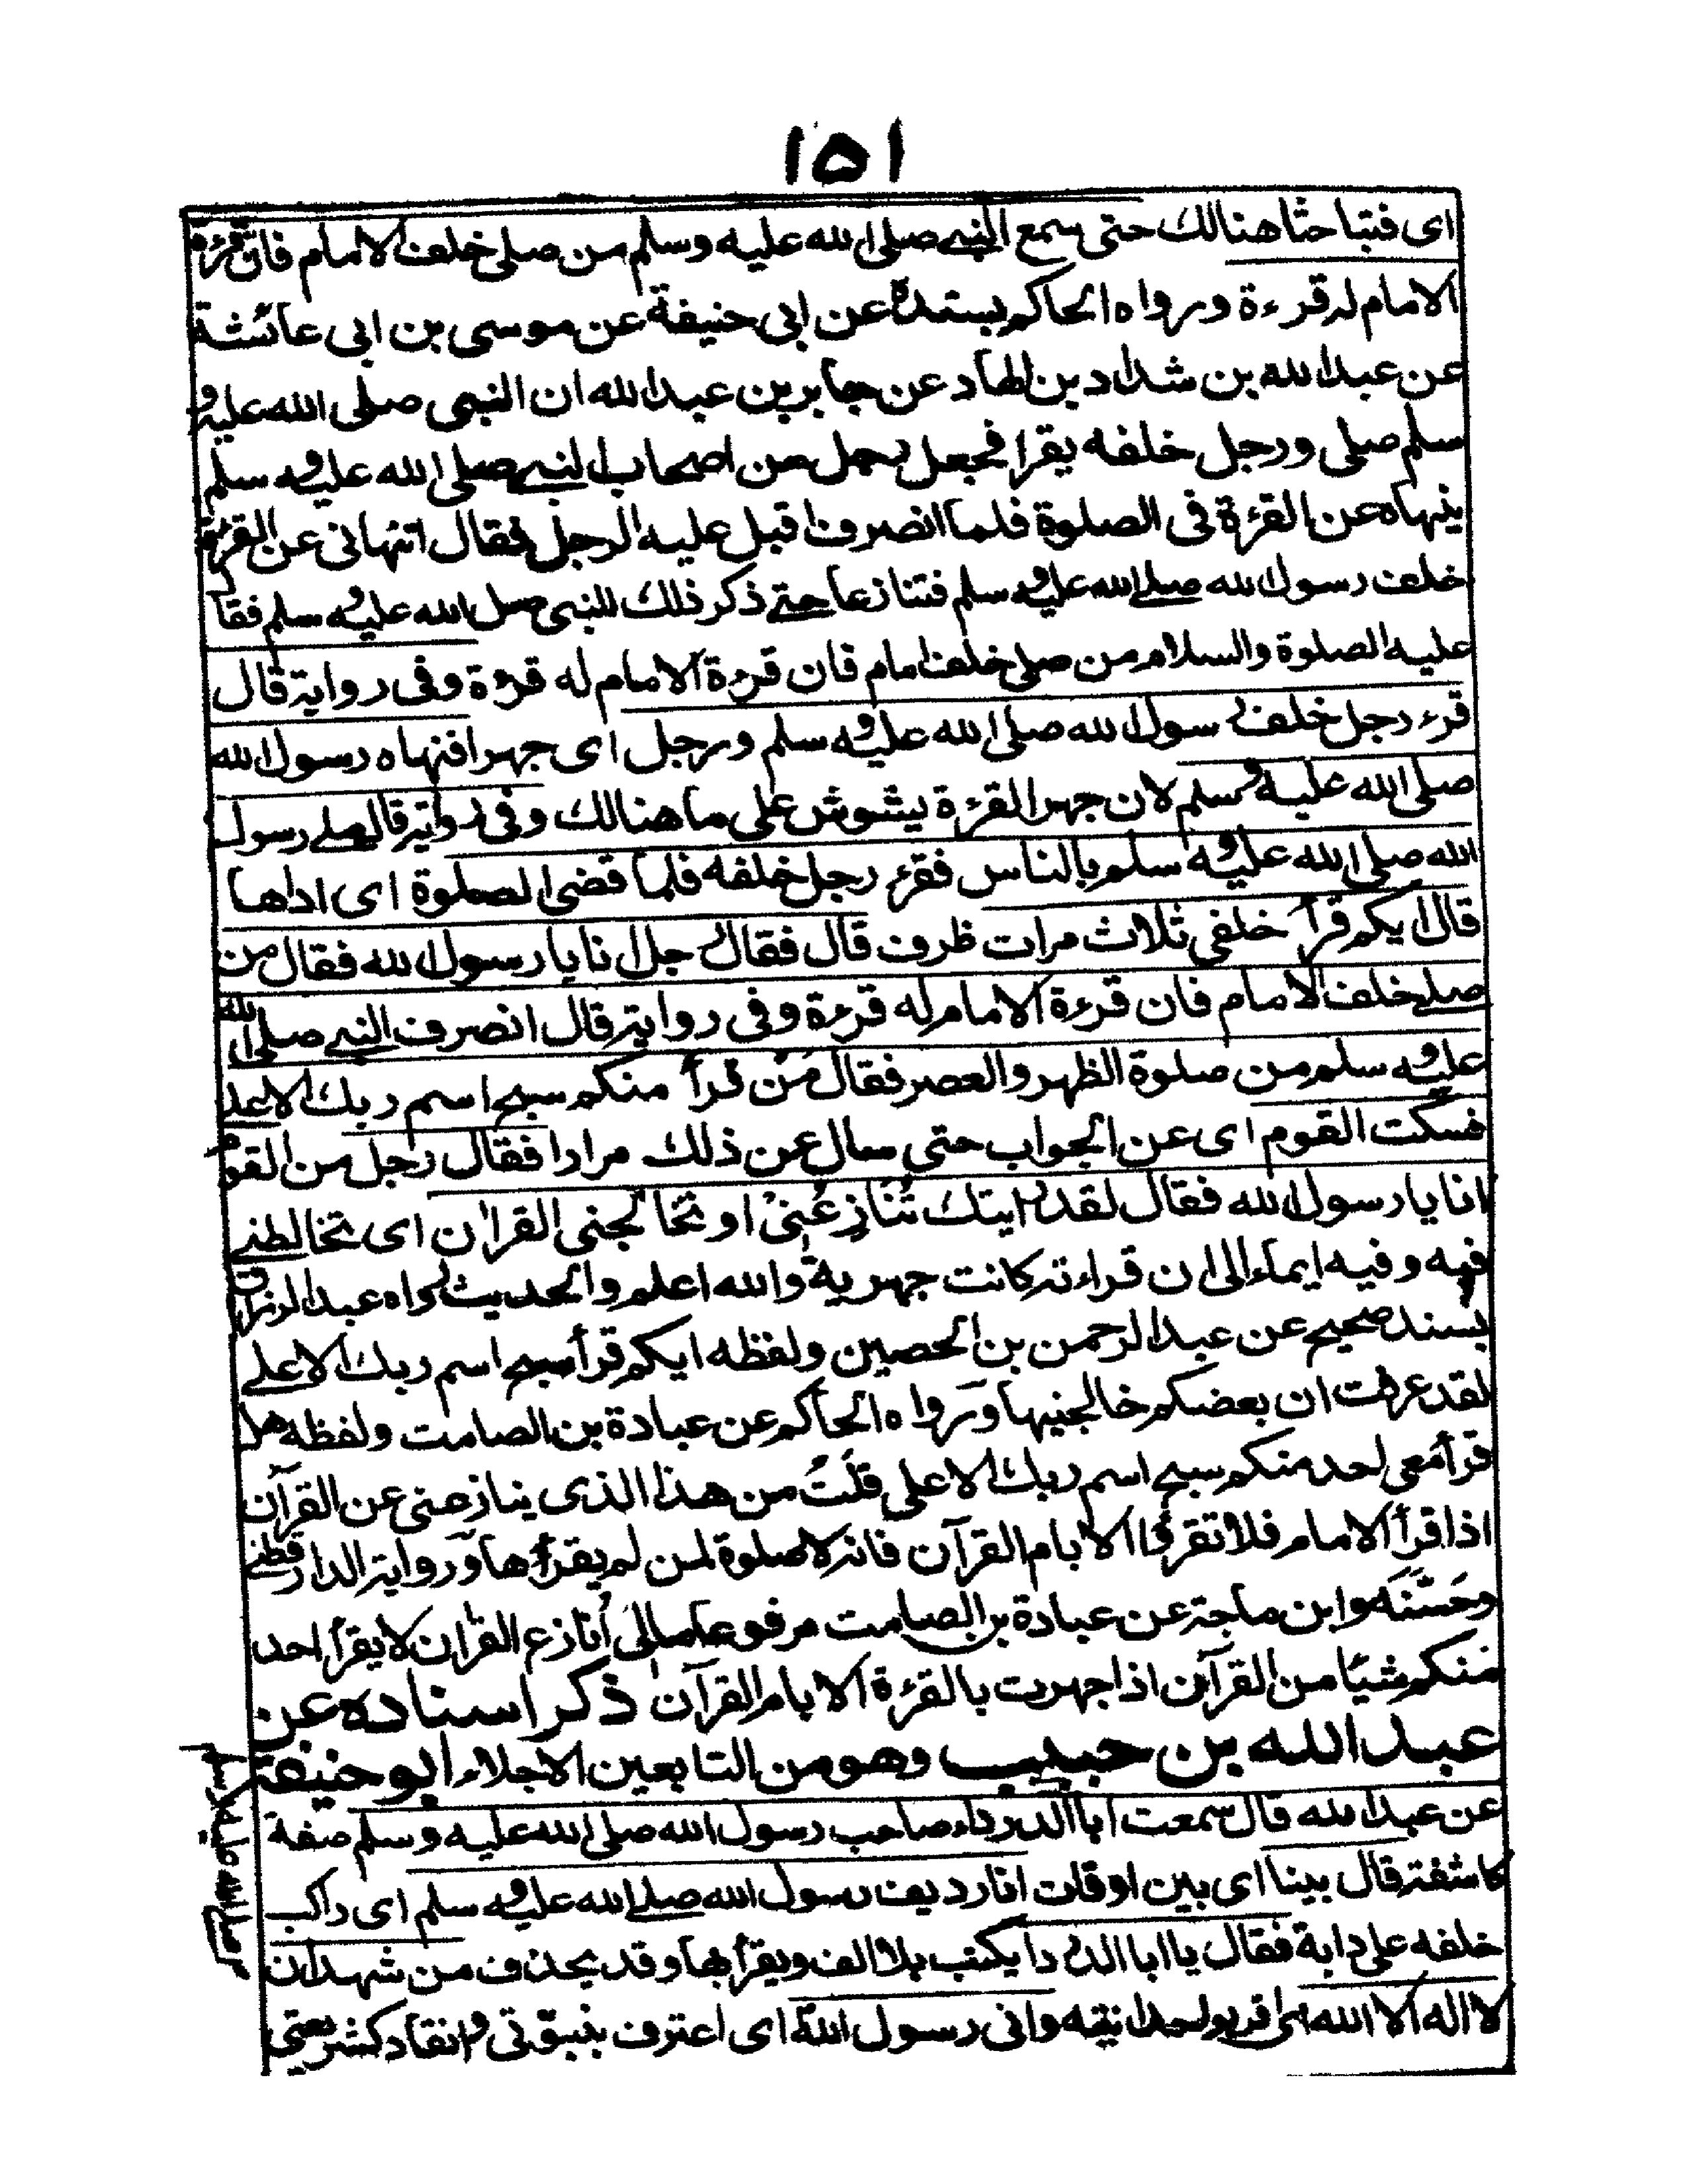 ١٥١
اى فتباحثا هنالك حتى سمع النبي صلى الله عليه وسلم من صلى خلف الامام فان قرءة
الامام له قرءة ورواه الحاكم بسنده عن ابى حنيفة عن موسى بن ابى عائشة
عن عبد الله بن شداد بن الهاد عن جابر بن عبد الله ان النبى صلى الله عليه و
سلم صلى ورجل خلفه يقرا فجعل رجل من اصحاب النبي صلى الله عليه وسلم
ينهاه عن القرءة فى الصلوة فلما انصرف اقبل عليه الرجل فقال اتنهانى عن القرءة
خلف رسول الله صلى الله عليه وسلم فتنازعا حتى ذكر ذلك للنبى صلى الله عليه وسلم فقا
عليه الصلوة والسلام من صلى خلف امام فان قرءة الامام له قرءة وفى رواية قال
قرء رجل خلف رسول الله صلى الله عليه وسلم ورجل اى جهرا فنهاه رسول الله
صلى الله عليه وسلم لان جهر القرءة يشوش على ما هنالك وفى رواية قال صلى رسول
الله صلى الله عليه وسلم بالناس فقرء رجل خلفه فلما قضى الصلوة اى اداها
قال ايكم قرأ خلفى ثلاث مرات ظرف قال فقال رجل انا يا رسول الله فقال من
صلى خلف الامام فان قرءة الامام له قرءة وفى رواية قال انصرف النبي صلى الله
عليه وسلم من صلوة الظهر والعصر فقال مَنْ قرأ منكم سبح اسم ربك الاعلى
فسكت القوم اى عن الجواب حتى سال عن ذلك مرارا فقال رجل من القوم
انا يا رسول الله فقال لقد رايتك تُنَازِعُنِىْ او تخالجنى القران اى تخالطنى
فيه وفيه ايماء الى ان قراءته كانت جهرية والله اعلم والحديث رواه عبد الرزاق
بسند صحيح عن عبد الرحمن بن الحصين ولفظه ايكم قرأ سبح اسم ربك الاعلى
لقد عرفت ان بعضكم خالجنيها ورواه الحاكم عن عبادة بن الصامت ولفظه هل
قرأ معى احد منكم سبح اسم ربك الاعلى قلتُ من هذا الذى ينازعنى عن القرآن
اذا قرأ الامام فلا تقرؤا الا بام القرآن فانه لا صلوة لمن لم يقرأ بها و رواية الدار قطنى
وحَسَّنَه وابن ماجة عن عبادة بن الصامت مرفوعا مالى أنازع القران لا يقرأ احد
منكم شيًا من القرآن اذا جهرت بالقرءة الا بام القرآن ذكر اسناده عن
عبد الله بن حبيب وهو من التابعين الاجلاء ابو حنيفة
عن عبد الله قال سمعت ابا الدرداء صاحب رسول الله صلى الله عليه وسلم صفة
كاشفة قال بينا اى بين اوقات انا رديف رسول الله صلى الله عليه وسلم اى راكب
خلفه على دابة فقال يا ابا الدردا يكتب بلا الف ويقرأ بها وقد يحذف من شهد ان
لا اله الا الله اى اقر بوحدانيته وانى رسول الله اى اعترف بنبوّتى وانقاد لشريعتى